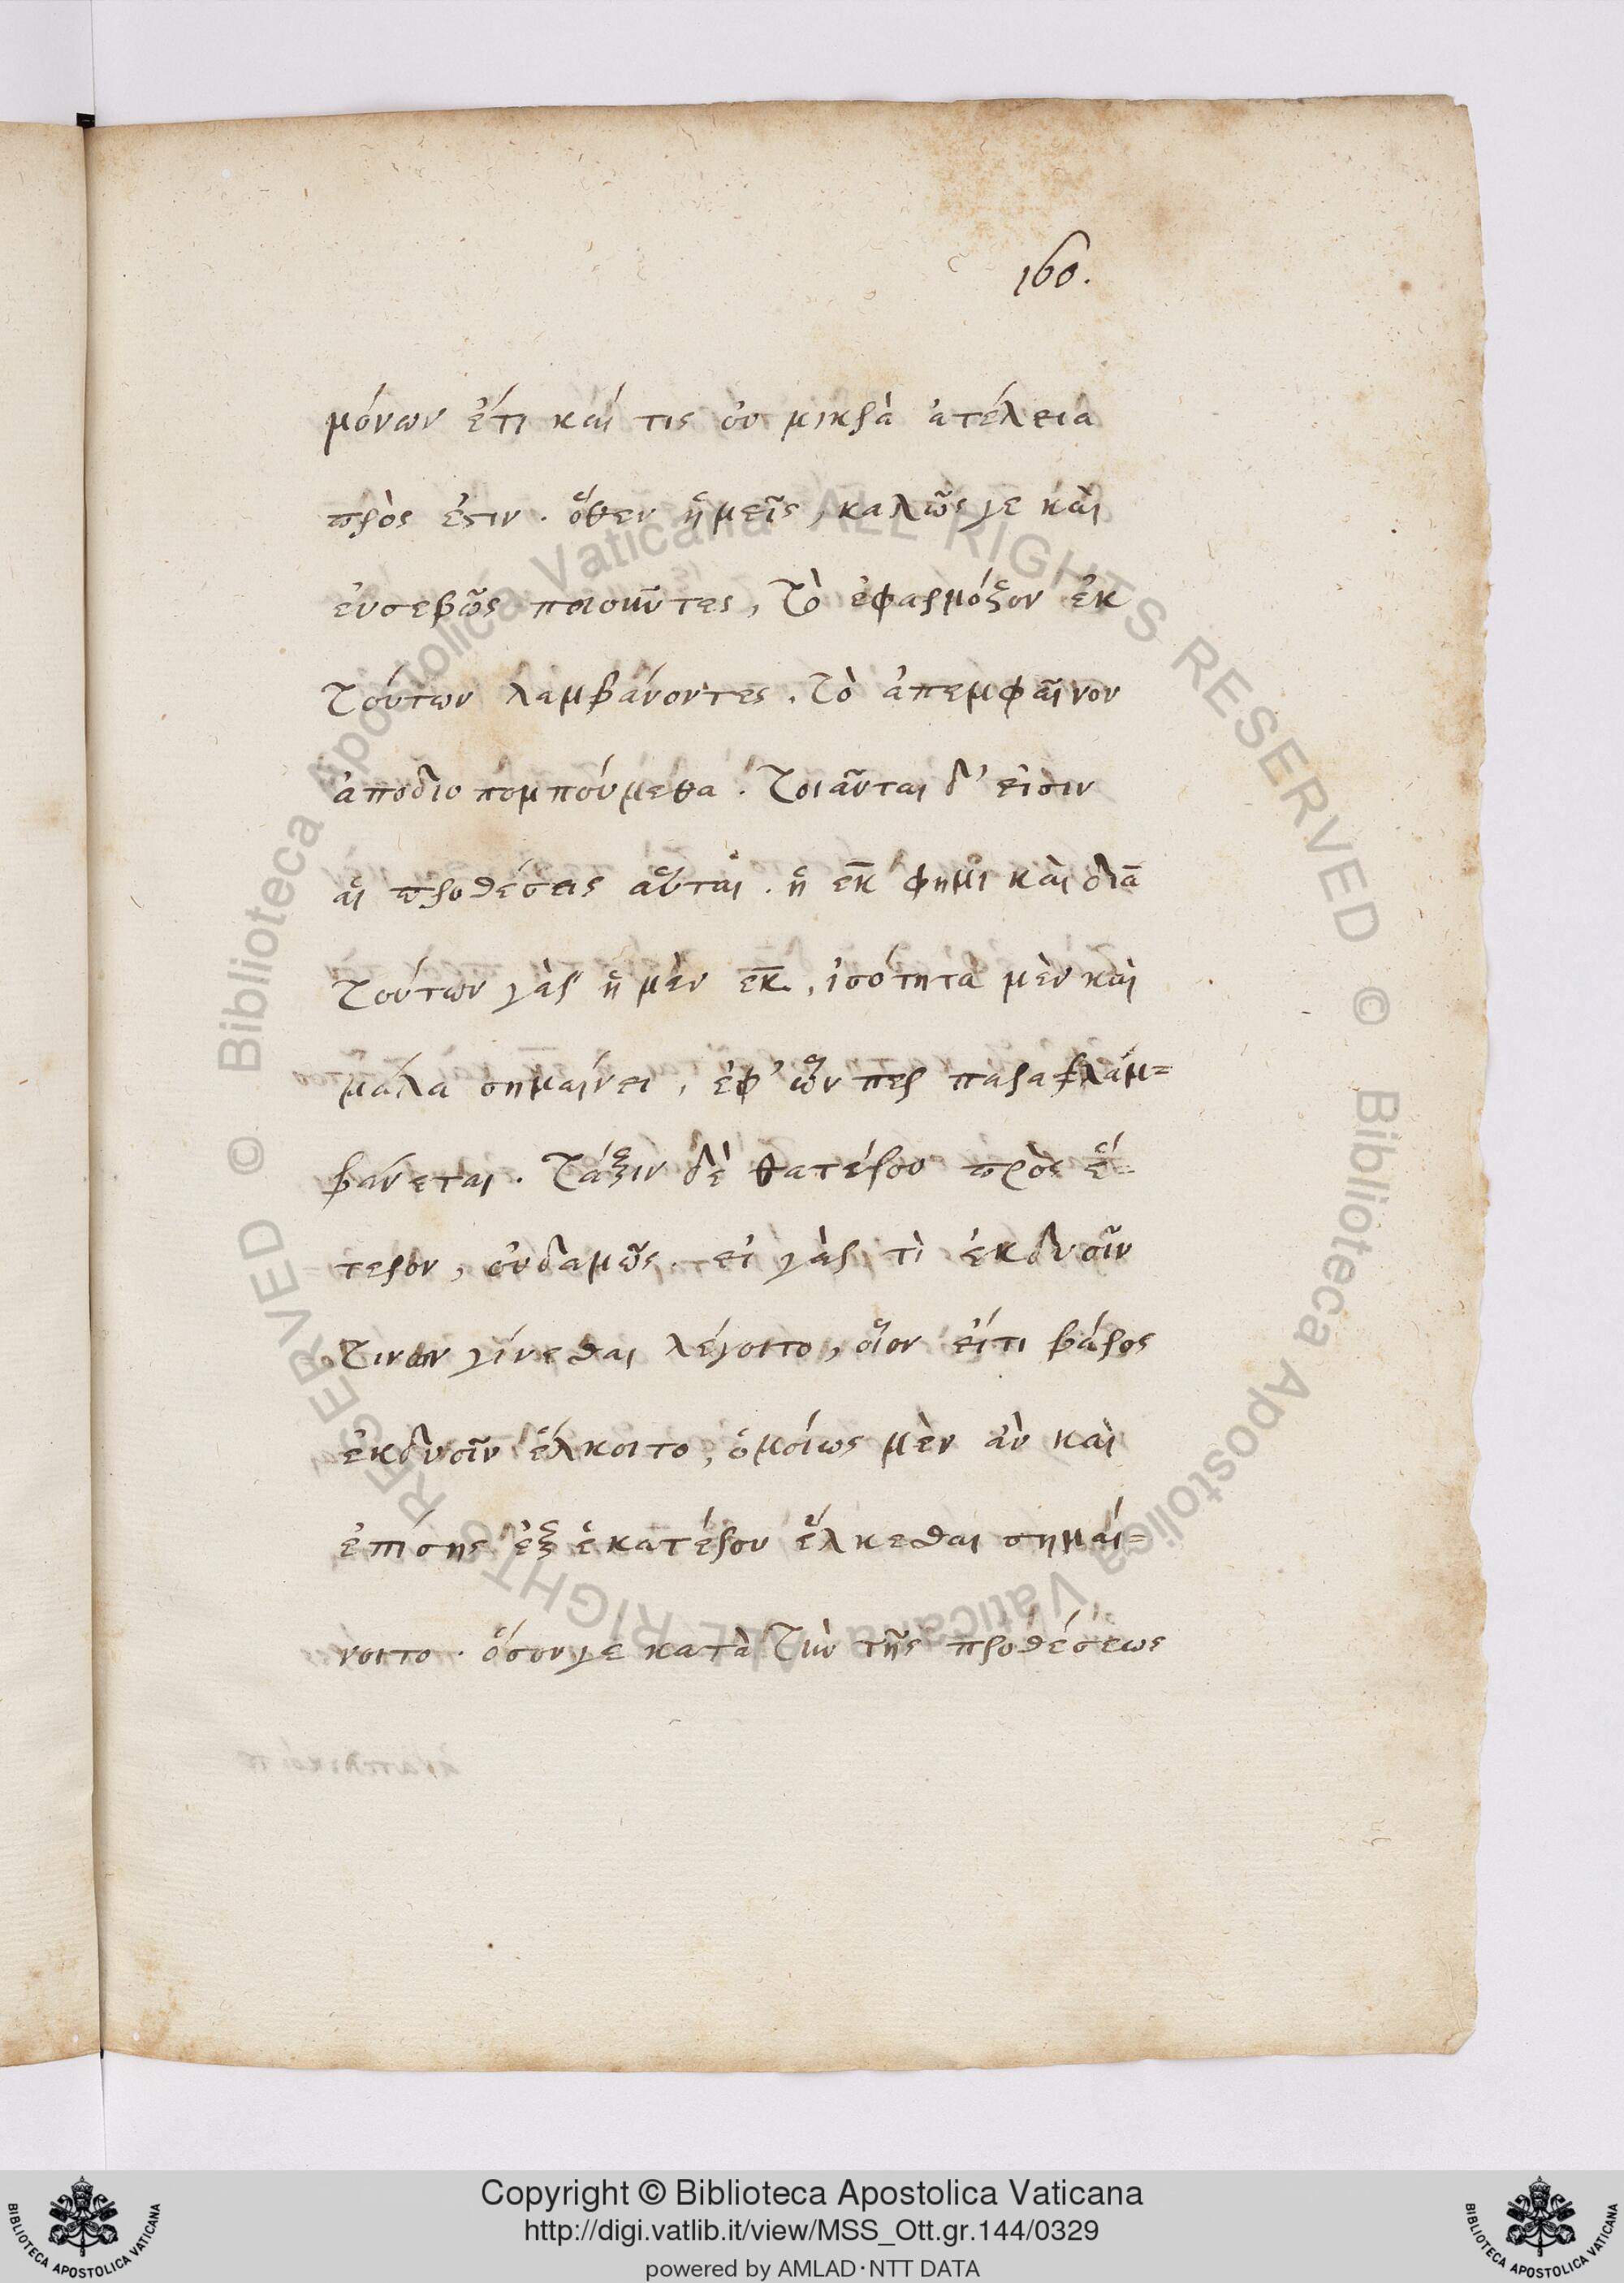 160.
μόνων ἔτι καί τις οὐ μικρὰ ἀτέλεια
πρὸς ἐστιν. ὅθεν ἡμεῖς, καλῶς γε καὶ
εὐσεβῶς ποιοῦντες, τὸ ἐφαρμόζον ἐκ
τούτων λαμβάνοντες. τὸ ἀπεμφαῖνον
ἀποδιοπομπούμεθα. τοιαῦται δ' εἰσιν
αἱ προθέσεις αὗται. ἡ ε̅κ̅ φημὶ καὶ δια̅
τούτων γὰρ ἡ μὲν ε̅κ̅, ἰσότητα μὲν καὶ
μάλα σημαίνει, ἐφ' ὧν περ παραλαμ=
βάνεται. τάξιν δὲ θατέρου πρὸς ἕ=
τερον, οὐδαμῶς. εἰ γὰρ τὶ ἐκδυοῖν
τινοιν γίνεσθαι λέγοιτο, οἷον εἴτι βάρος
ἐκδυοῖν ἕλκοιτο, ὁμοίως μὲν ἂν καὶ
ἐπίσης ἐξ ἑκατέρου ἕλκεσθαι σημαί=
νοιτο. ὅσονγε κατὰ τὴν τῆς προθέσεως
Copyright © Biblioteca Apostolica Vaticana
http://digi.vatlib.it/view/MSS_Ott.gr.144/0329
powered by AMLAD·NTT DATA
© Biblioteca Apostolica Vaticana ALL RIGHTS RESERVED
© Biblioteca Apostolica Vaticana ALL RIGHTS RESERVED
BIBLIOTECA APOSTOLICA VATICANA
BIBLIOTECA APOSTOLICA VATICANA